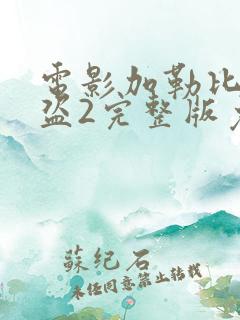 电影加勒比
盗2完整版
蘇紀石
未经同意禁止转载